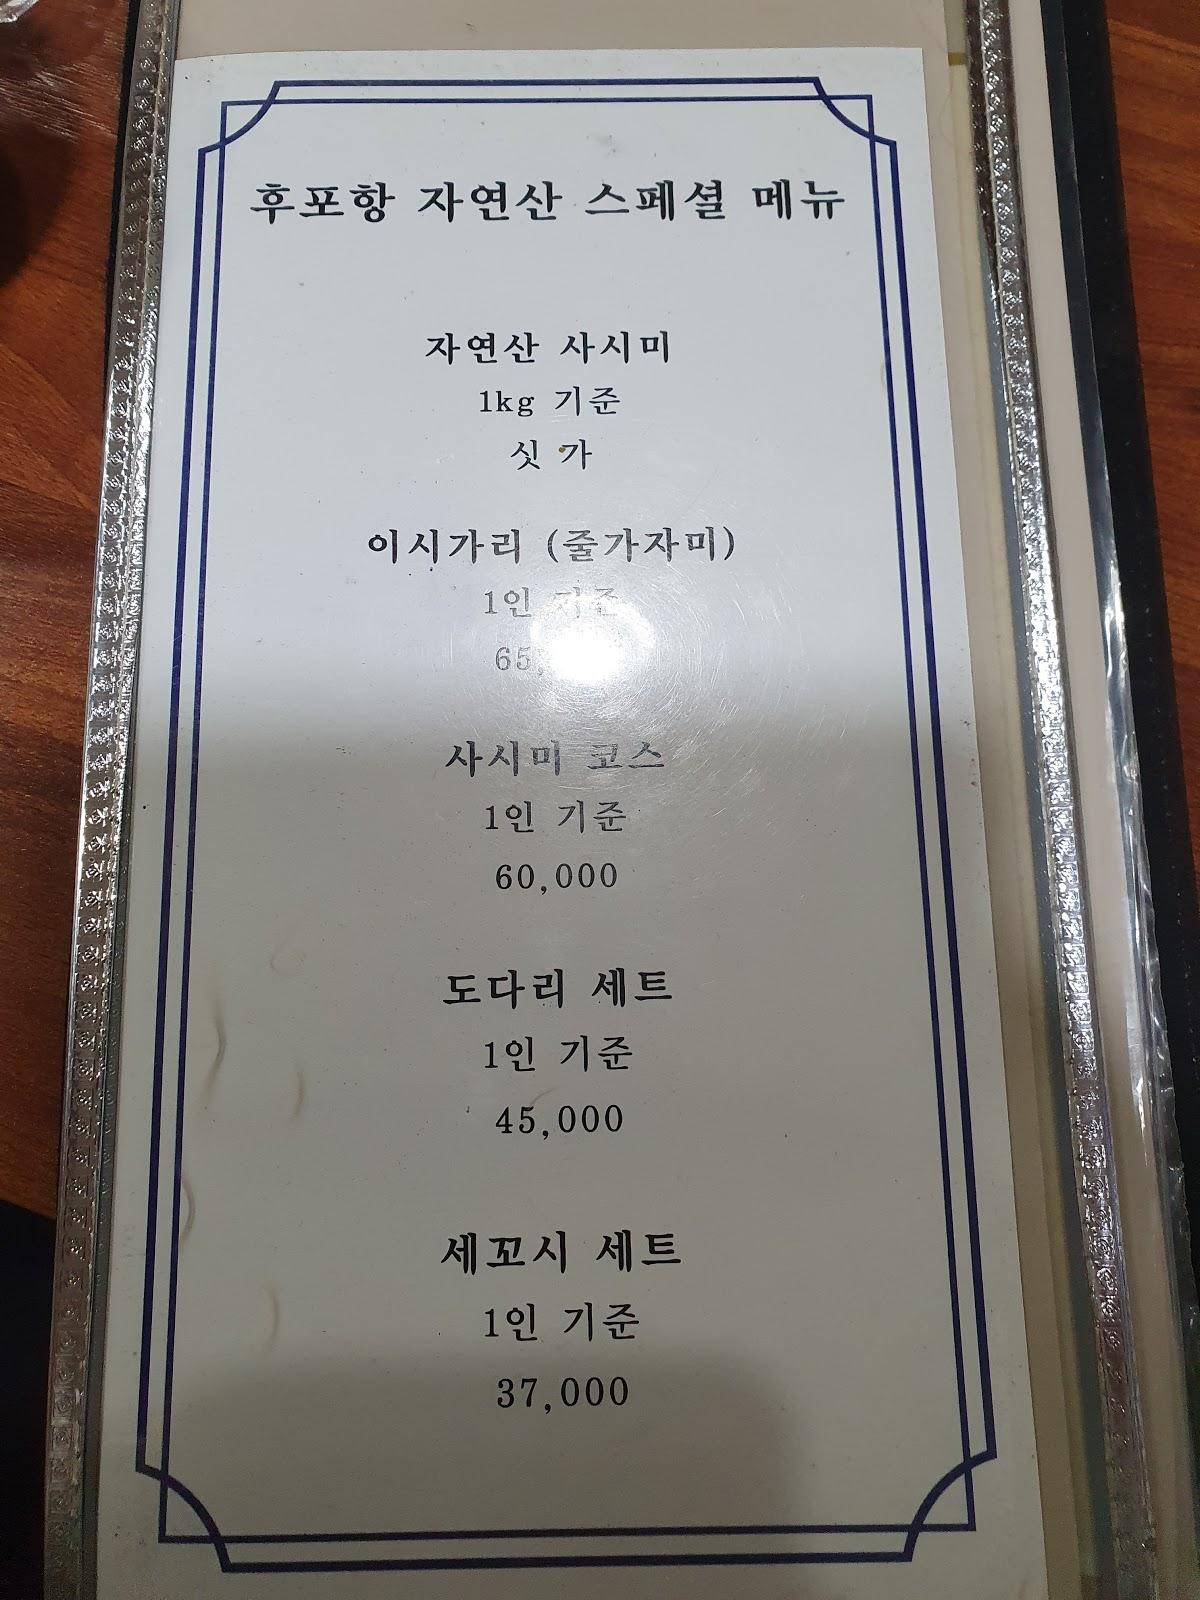 후포항 자연산 스페셜 메뉴
자연산 사시미
1kg 기준
싯 가
이시가리 (줄가자미)
1인 기준
65,
사시미 코스
1인 기준
60,000
도다리 세트
1인 기준
45,000
세꼬시 세트
1인 기준
37,000